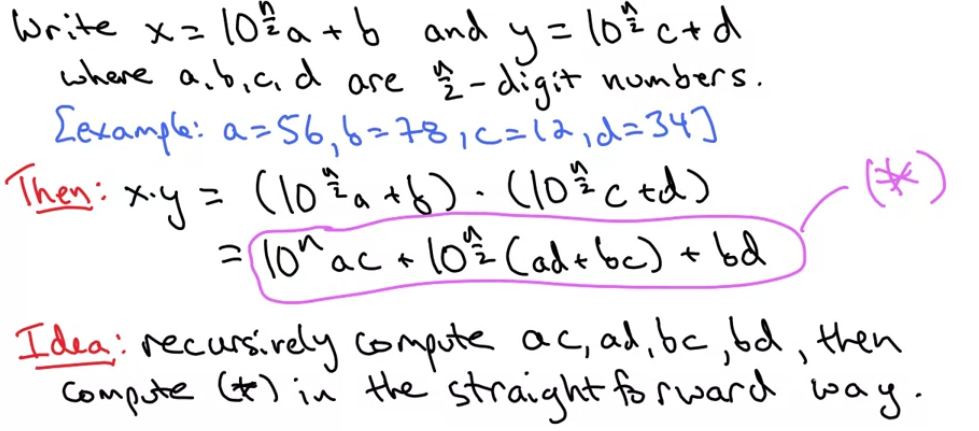 Write x = 10^(n/2) a + b and y = 10^(n/2) c + d
where a,b,c,d are n/2-digit numbers.
[example: a=56, b=78, c=12, d=34]
Then: x·y = (10^(n/2) a + b) · (10^(n/2) c + d) (*)
= 10^n ac + 10^(n/2) (ad + bc) + bd
Idea: recursively compute ac, ad, bc, bd, then
compute (*) in the straightforward way.